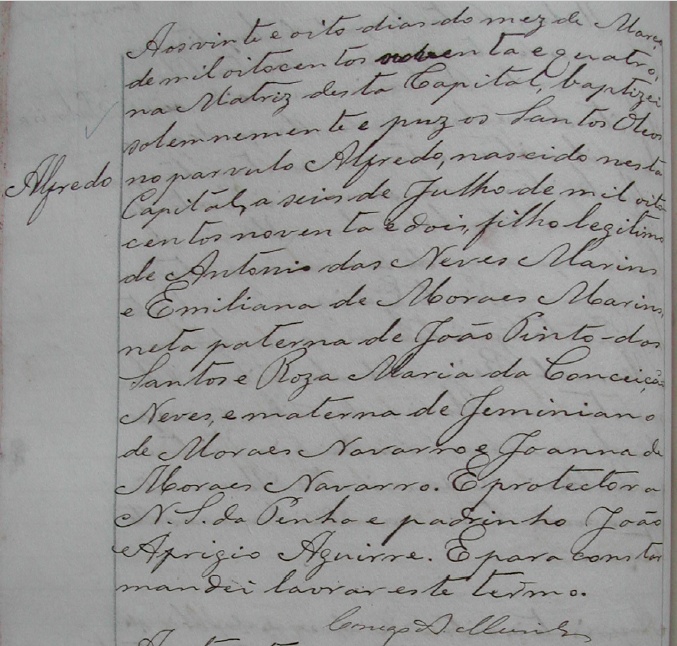 Aos vinte e oito dias do mez de Março
de mil oitocentos noventa e quatro,
na Matriz desta Capital, baptizei
solemnemente e puz os Santos Oleos
Alfredo
no parvulo Alfredo, nascido nesta
Capital, a seis de Julho de mil oito
centos noventa e dois, filho legitimo
de Antonio das Neves Marins
e Emiliana de Moraes Marins,
neta paterna de João Pinto dos
Santos e Roza Maria da Conceição
Neves, e materna de Jeminiano
de Moraes Navarro e Joanna de
Moraes Navarro. E protectora
N. S. da Penha e padrinho João
Aprigio Aguirre. E para constar
mandei lavrar este termo.
Conego A.